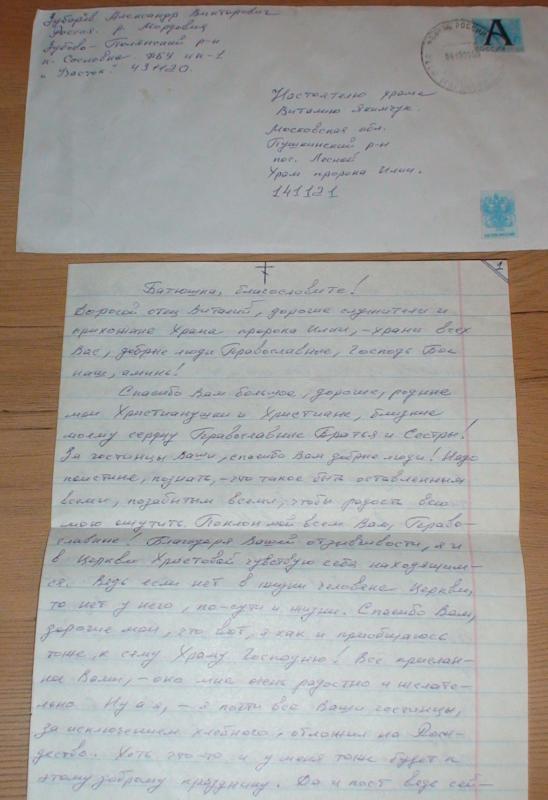 Зубарев Александр Викторович
Россия. р. Мордовия
Зубово-Полянский р-н
п. Сосновка ФБУ ИК-1
"Восток" 431120.
А
РОССИЯ
Настоятелю храма
Виталию Якимчук.
Московская обл.
Пушкинский р-н
пос. Лесной
Храм пророка Илии.
141121
1
Батюшка, благословите!
Дорогой отец Виталий, дорогие служители и
прихожане Храма пророка Илии, – храни всех
Вас, добрые люди Православные, Господь Бог
наш, аминь!
Спасибо Вам большое, дорогие, родные
мои Христианушки и Христиане, близкие
моему сердцу Православные Братья и Сестры!
За гостинцы Ваши, спасибо Вам добрые люди! Надо
поистине, познать, – что такое быть оставленным
всеми, позабытым всеми, чтобы радость всю
мою ощутить. Поклон мой всем Вам, Право-
славные! Благодаря Вашей отзывчивости, я и
в Церкви Христовой чувствую себя находящим-
ся. Ведь если нет в жизни человека Церкви,
то нет у него, по-сути и жизни. Спасибо Вам,
дорогие мои, что вот, я как и приобщаюсь
тоже, к сему Храму Господню! Все прислан-
ное Вами, – оно мне очень радостно и жела
льно. Ну а я, – я почти все Ваши гостинцы,
за исключением хлебного, отложил на Рож-
дество. Хоть что-то и у меня тоже будет к
этому доброму празднику. Да и пост ведь сей-